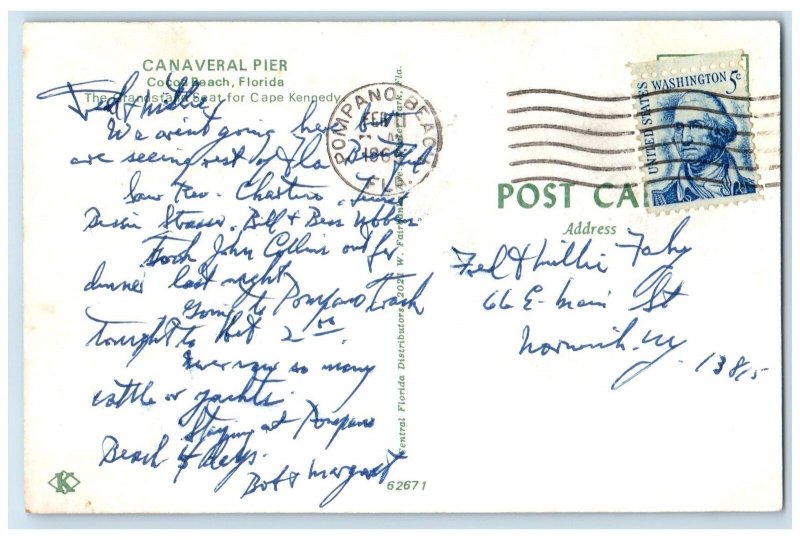 CANAVERAL PIER
Cocoa Beach, Florida
The Grandstand Seat for Cape Kennedy
Fred & Millie
We arent going here but
are seeing rest of Fla.
Saw Rev.
Bessie Strasser. Bill & Bess
Took John Collins out for
dinner last night
Going to Pompano Track
tonight to bet 2 00
Never saw so many
cattle or yachts.
Staying at Pompano
Beach 4 days.
Bob & Margaret
K
62671
Central Florida Distributors, 2024 W. Fairbanks Ave., Winter Park, Fla.
POMPANO BEACH
FEB
196
FL
UNITED STATES
WASHINGTON 5c
POST CA
Address
Fred & Millie Fahy
66 E. Main St
Norwich, NY
13815